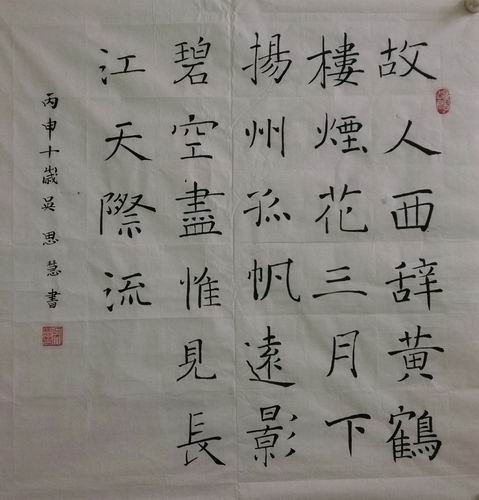 故人西辞黄鶴
樓煙花三月下
揚州孤帆遠影
碧空盡惟見長
江天際流
丙申十歲吳思慧書